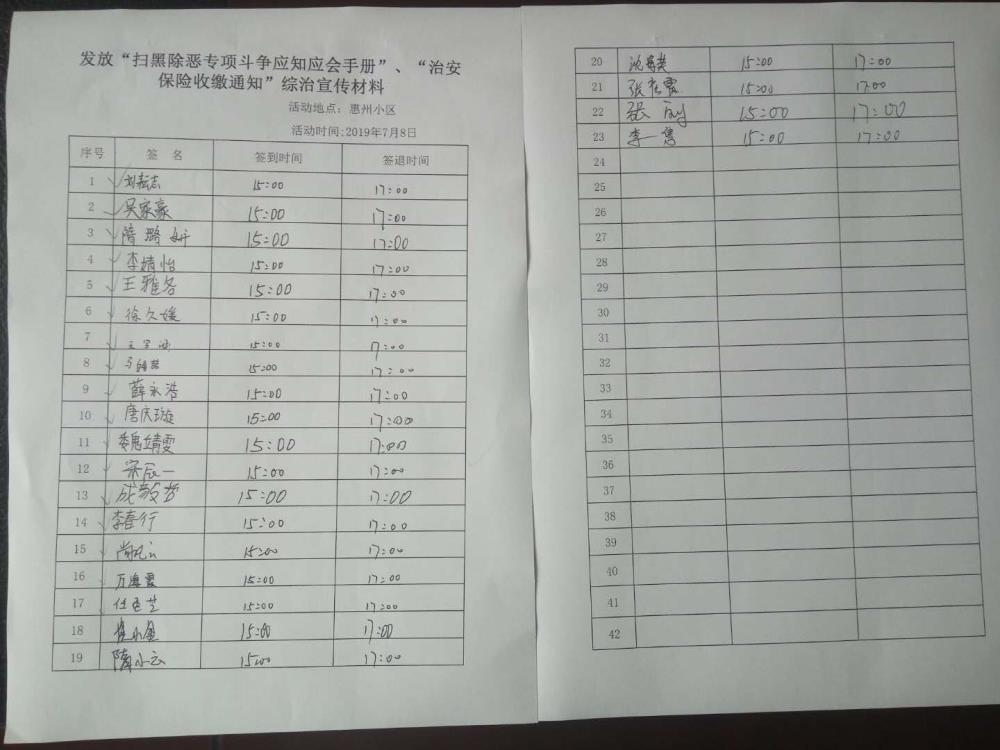 发放“扫黑除恶专项斗争应知应会手册”、“治安
保险收缴通知”综治宣传材料
活动地点：惠州小区
活动时间:2019年7月8日
序号 签 名 签到时间 签退时间
1 15:00 17:00
2 吴家豪 15:00 17:00
3 隋璐妍 15:00 17:00
4 李婧怡 15:00 17:00
5 王雅各 15:00 17:00
6 徐久媛 15:00 17:00
7 15:00 17:00
8 15:00 17:00
9 薛永浩 15:00 17:00
10 唐庆璇 15:00 17:00
11 魏靖雯 15:00 17:00
12 宋辰一 15:00 17:00
13 15:00 17:00
14 李喜行 15:00 17:00
15 15:00 17:00
16 万海霞 15:00 17:00
17 15:00 17:00
18 15:00 17:00
19 隋小云 15:00 17:00
20 15:00 17:00
21 15:00 17:00
22 15:00 17:00
23 15:00 17:00
24
25
26
27
28
29
30
31
32
33
34
35
36
37
38
39
40
41
42